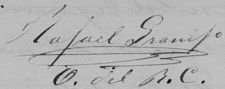 Rafael Granizo
O. del R. C.